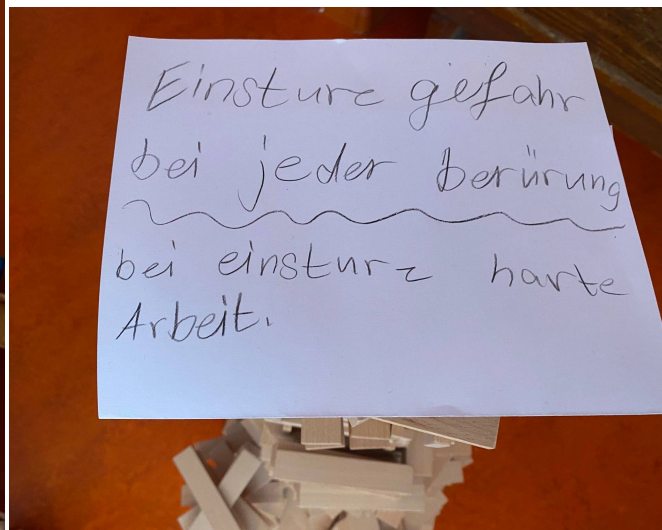 Einsturz gefahr
bei jeder berürung
bei einsturz harte
Arbeit.